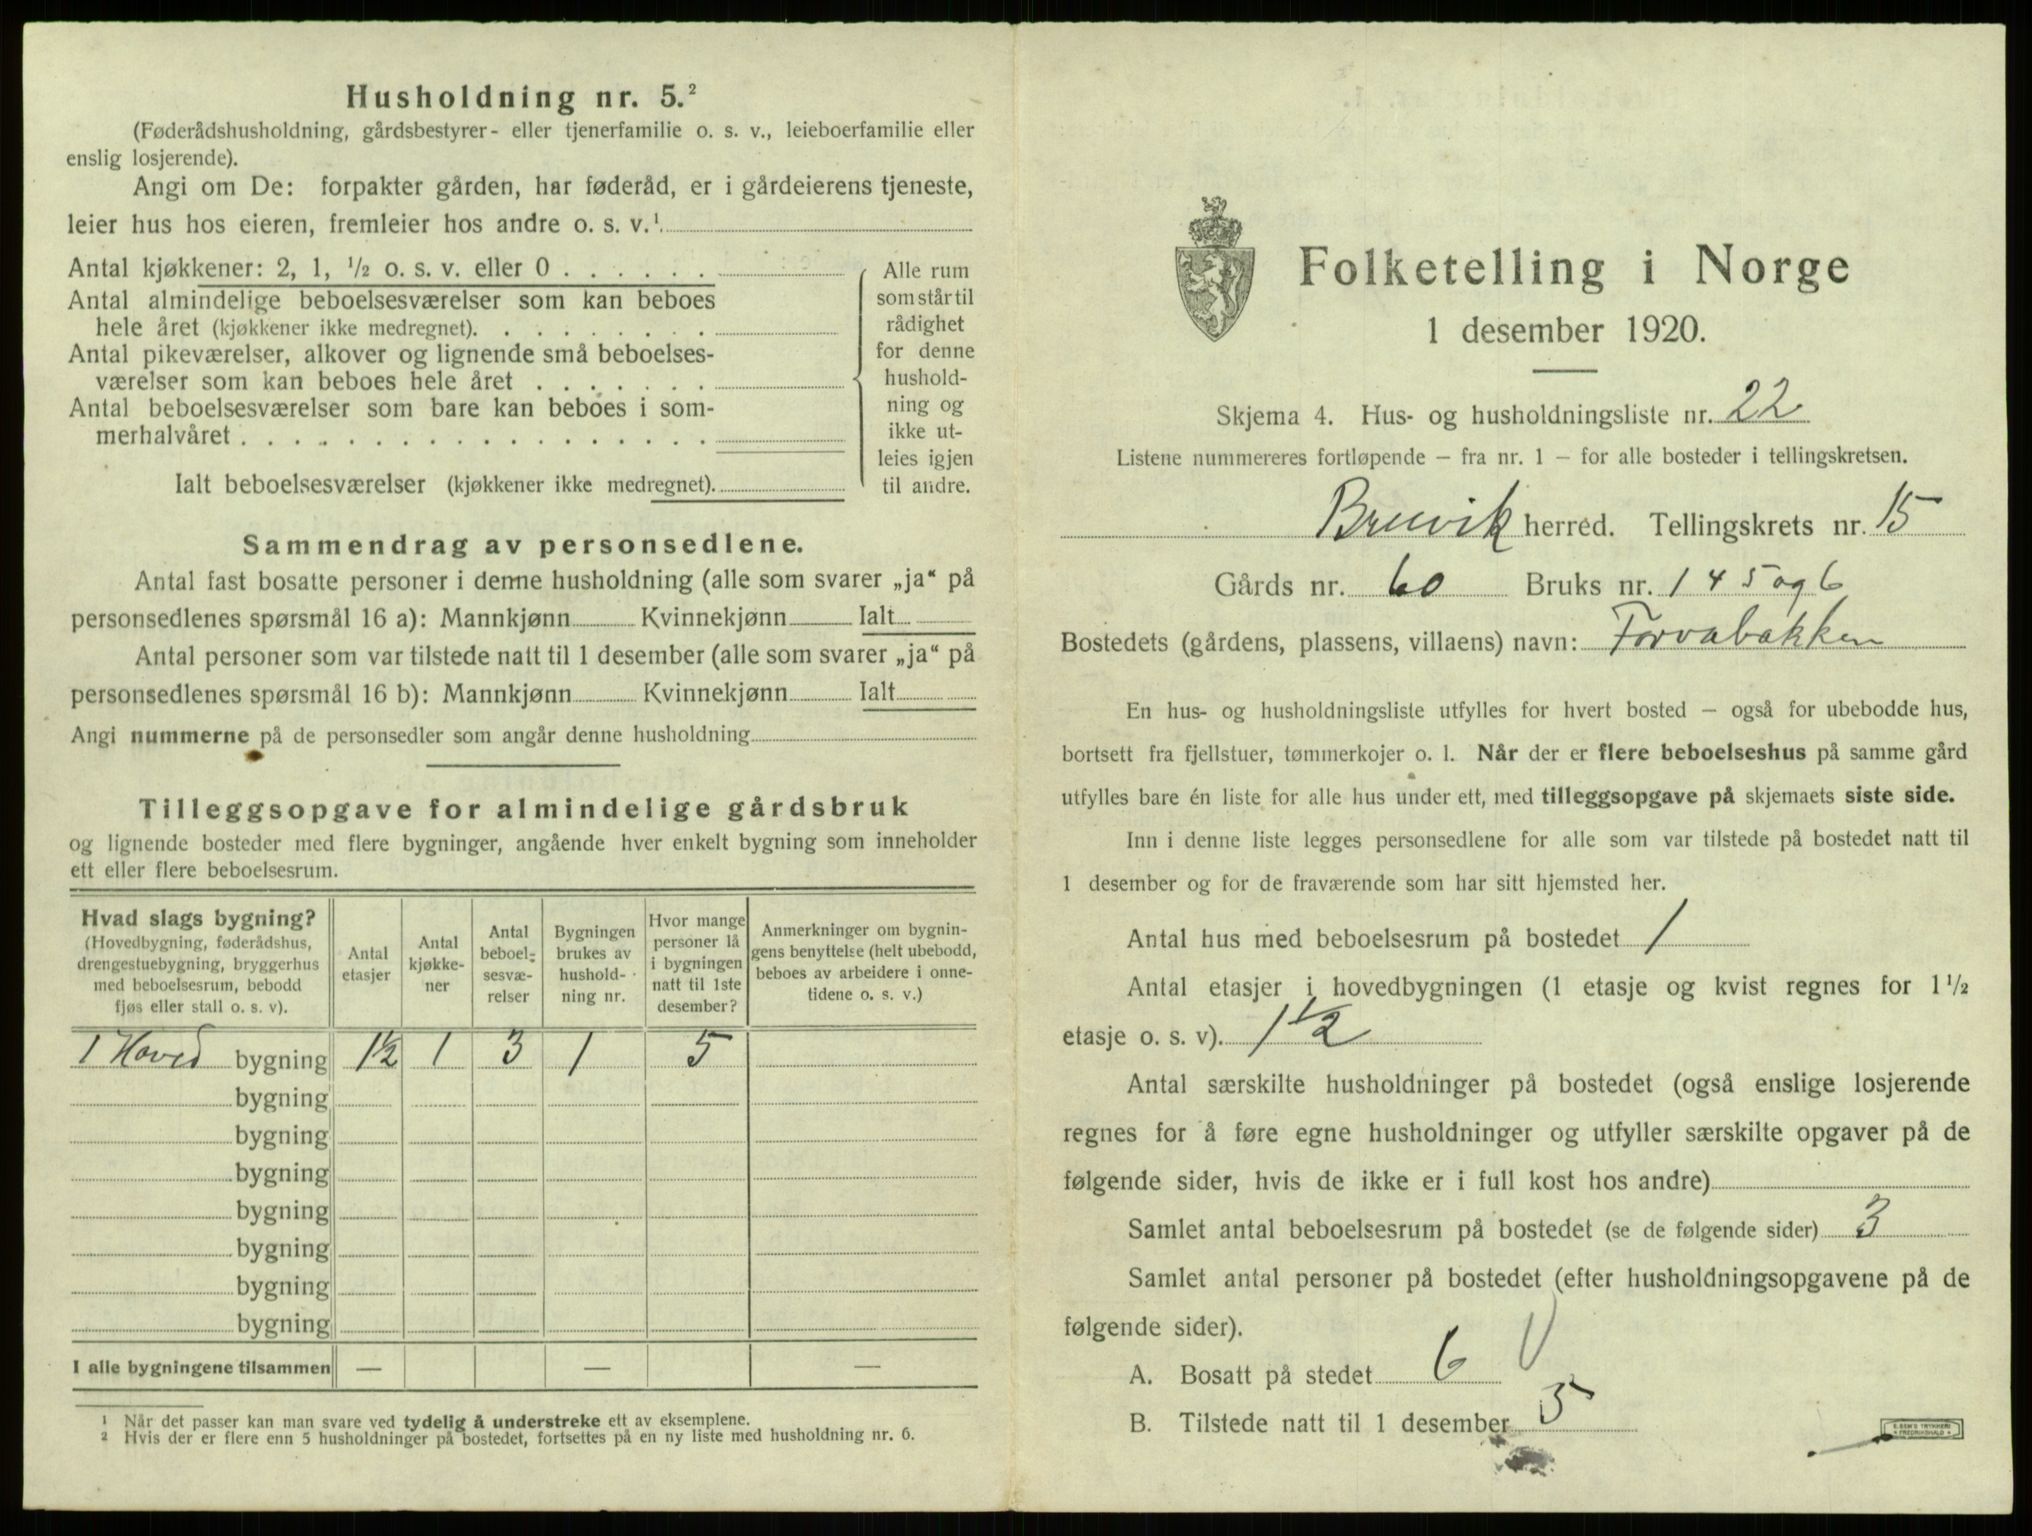 Husholdning nr. 5.²
(Føderådshusholdning, gårdsbestyrer- eller tjenerfamilie o. s. v., leieboerfamilie eller
enslig losjerende).
Angi om De: forpakter gården, har føderåd, er i gårdeierens tjeneste,
leier hus hos eieren, fremleier hos andre o. s. v.¹
Antal kjøkkener: 2, 1, ½ o. s. v. eller 0 . . . . . .
Antal almindelige beboelsesværelser som kan beboes
hele året (kjøkkener ikke medregnet). . . . . . . . .
Antal pikeværelser, alkover og lignende små beboelses-
værelser som kan beboes hele året . . . . . . .
Antal beboelsesværelser som bare kan beboes i som-
merhalvåret . . . . . . . . . . . . . . . . . .
Ialt beboelsesværelser (kjøkkener ikke medregnet).
Alle rum
som står til
rådighet
for denne
hushold-
ning og
ikke ut-
leies igjen
til andre.
Sammendrag av personsedlene.
Antal fast bosatte personer i denne husholdning (alle som svarer „ja“ på
personsedlenes spørsmål 16 a): Mannkjønn Kvinnekjønn Ialt
Antal personer som var tilstede natt til 1 desember (alle som svarer „ja“ på
personsedlenes spørsmål 16 b): Mannkjønn Kvinnekjønn Ialt
Angi nummerne på de personsedler som angår denne husholdning
Tilleggsopgave for almindelige gårdsbruk
og lignende bosteder med flere bygninger, angående hver enkelt bygning som inneholder
ett eller flere beboelsesrum.
Hvad slags bygning?
(Hovedbygning, føderådshus,
drengestuebygning, bryggerhus
med beboelsesrum, bebodd
fjøs eller stall o. s. v).
Antal
etasjer
Antal
kjøkke-
ner
Antal
beboel-
sesvæ-
relser
Bygningen
brukes av
hushold-
ning nr.
Hvor mange
personer lå
i bygningen
natt til 1ste
desember?
Anmerkninger om bygnin-
gens benyttelse (helt ubebodd,
beboes av arbeidere i onne-
tidene o. s. v.)
1 Hoved bygning 1½ 1 3 1 5
bygning
bygning
bygning
bygning
bygning
bygning
bygning
I alle bygningene tilsammen — — —
¹ Når det passer kan man svare ved tydelig å understreke ett av eksemplene.
² Hvis der er flere enn 5 husholdninger på bostedet, fortsettes på en ny liste med husholdning nr. 6.
Folketelling i Norge
1 desember 1920.
Skjema 4. Hus- og husholdningsliste nr. 22
Listene nummereres fortløpende – fra nr. 1 – for alle bosteder i tellingskretsen.
Bruvik herred. Tellingskrets nr. 15
Gårds nr. 60 Bruks nr. 1 4 5 og 6
Bostedets (gårdens, plassens, villaens) navn: Forvabakken
En hus- og husholdningsliste utfylles for hvert bosted – også for ubebodde hus,
bortsett fra fjellstuer, tømmerkojer o. l. Når der er flere beboelseshus på samme gård
utfylles bare én liste for alle hus under ett, med tilleggsopgave på skjemaets siste side.
Inn i denne liste legges personsedlene for alle som var tilstede på bostedet natt til
1 desember og for de fraværende som har sitt hjemsted her.
Antal hus med beboelsesrum på bostedet 1
Antal etasjer i hovedbygningen (1 etasje og kvist regnes for 1½
etasje o. s. v). 1½
Antal særskilte husholdninger på bostedet (også enslige losjerende
regnes for å føre egne husholdninger og utfyller særskilte opgaver på de
følgende sider, hvis de ikke er i full kost hos andre)
Samlet antal beboelsesrum på bostedet (se de følgende sider) 3
Samlet antal personer på bostedet (efter husholdningsopgavene på de
følgende sider).
A. Bosatt på stedet 6
B. Tilstede natt til 1 desember 5
E. SEM'S TRYKKERI
FREDRIKSHALD